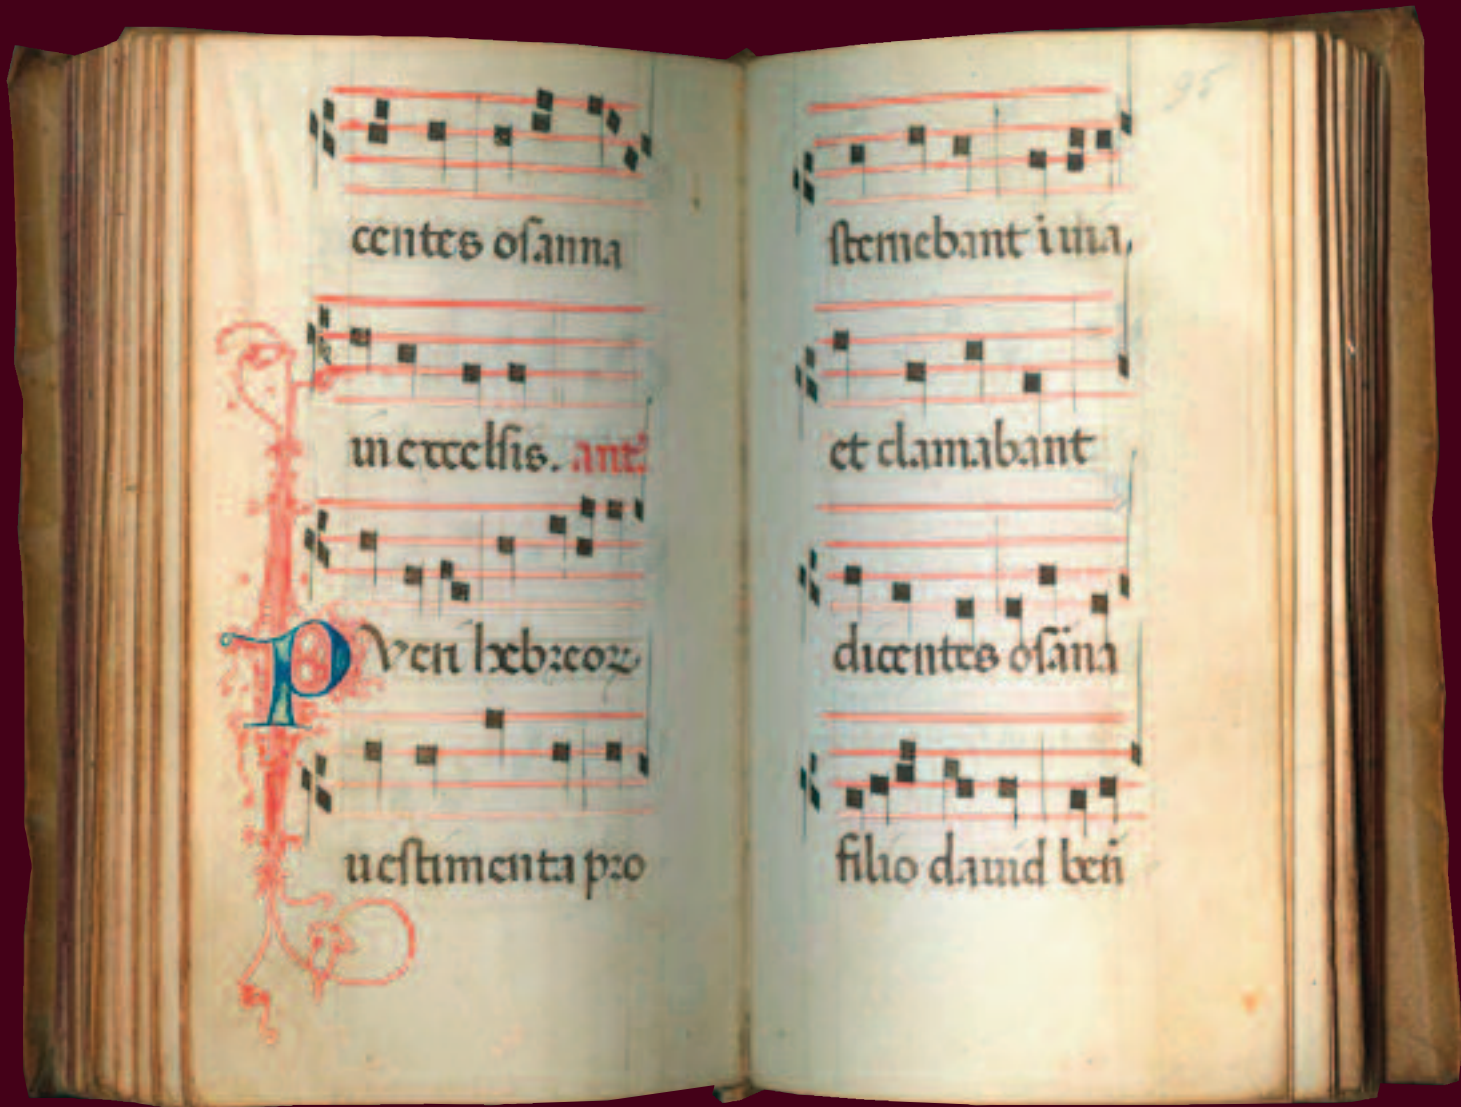 centes osanna
in excelsis. ant.
Pueri hebreoꝝ
uestimenta pro
95
sternebant i uia,
et clamabant
dicentes osāna
filio dauid ben